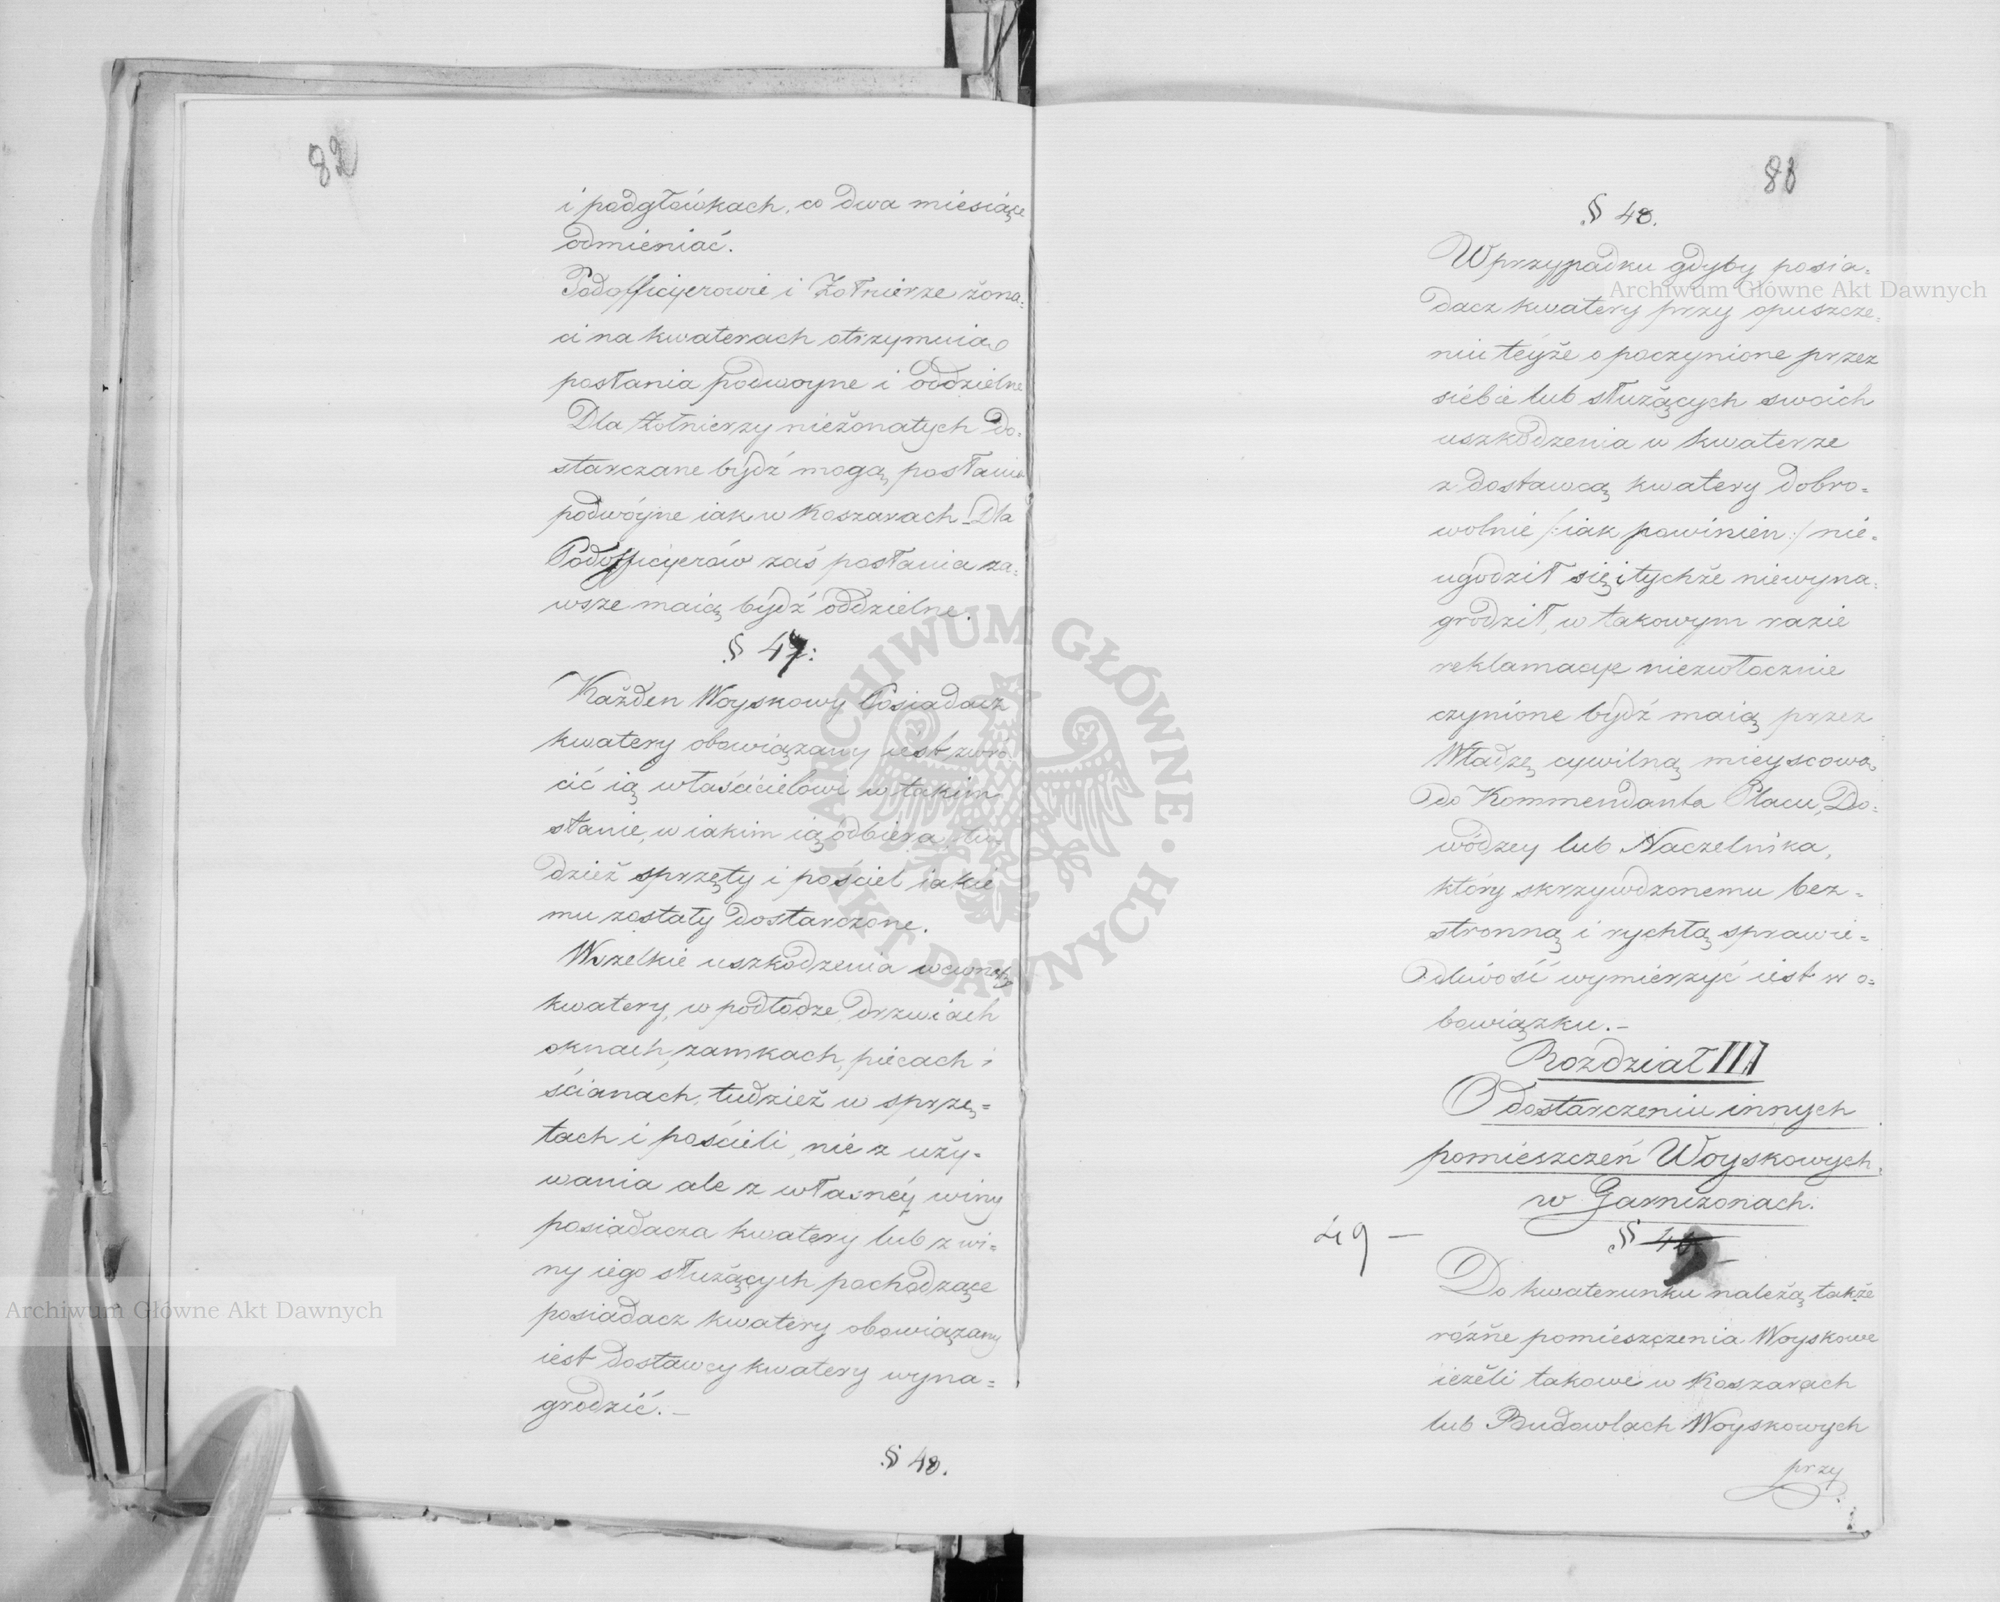 82
i podgłówkach, co dwa miesiące
odmieniać.
Podofficyerowie i Żołnierze żona-
ci na kwaterach otrzymuią
posłania podwoyne i oddzielne
Dla Żołnierzy nieżonatych do-
starczane bydź mogą posłania
podwóyne iak w Koszarach. Dla
Podofficyerów zaś posłania za-
wsze maią bydź oddzielne.
§ 47.
Każden Woyskowy Posiadacz
kwatery obowiązany iest zwró
cić ią właścicielowi w takim
stanie, w iakim ią odbiera, tu-
dzież sprzęty i pościel iakie
mu zostały dostarczone.
Wszelkie uszkodzenia wewnątrz
kwatery, w podłodze, drzwiach
oknach, zamkach, piecach i
ścianach, tudzież w sprzę=
tach i pościeli, nie z uży-
wania ale z własnéy winy
posiadacza kwatery lub z wi-
ny iego służących pochodzące
posiadacz kwatery obowiązany
iest dostawcy kwatery wyna=
grodzić. –
§ 48.
83
§ 48.
W przypadku gdyby posia-
dacz kwatery przy opuszcze-
niu téyże o poczynione przez
siebie lub służących swoich
uszkodzenia w kwaterze
z dostawcą kwatery dobro-
wolnie /:iak powinien:/ nie-
ugodził się i tychże niewyna-
grodził, w takowym razie
reklamacye niezwłocznie
czynione bydź maią przez
Władzę cywilną mieyscową
do Kommendanta Placu, Do-
wódzcy lub Naczelnika,
który skrzywdzonemu bez-
stronną i rychłą sprawie-
dliwość wymierzyć iest w o-
bowiązku. –
Rozdział III
O dostarczeniu innych
pomieszczeń Woyskowych
w Garnizonach.
49 –
§
Do kwaterunku należą także
różne pomieszczenia Woyskowe
ieżeli takowe w Koszarach
lub Budowlach Woyskowych
przy
Archiwum Główne Akt Dawnych
Archiwum Główne Akt Dawnych
ARCHIWUM GŁÓWNE AKT DAWNYCH